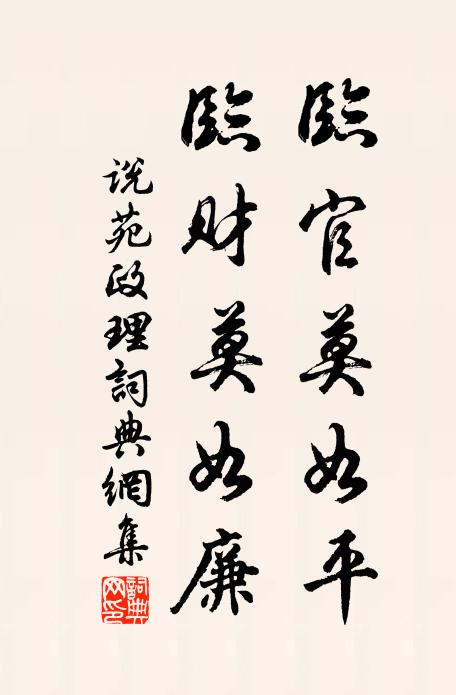 臨官莫如平
臨財莫如廉
説苑政理詞典網集
詞典網印